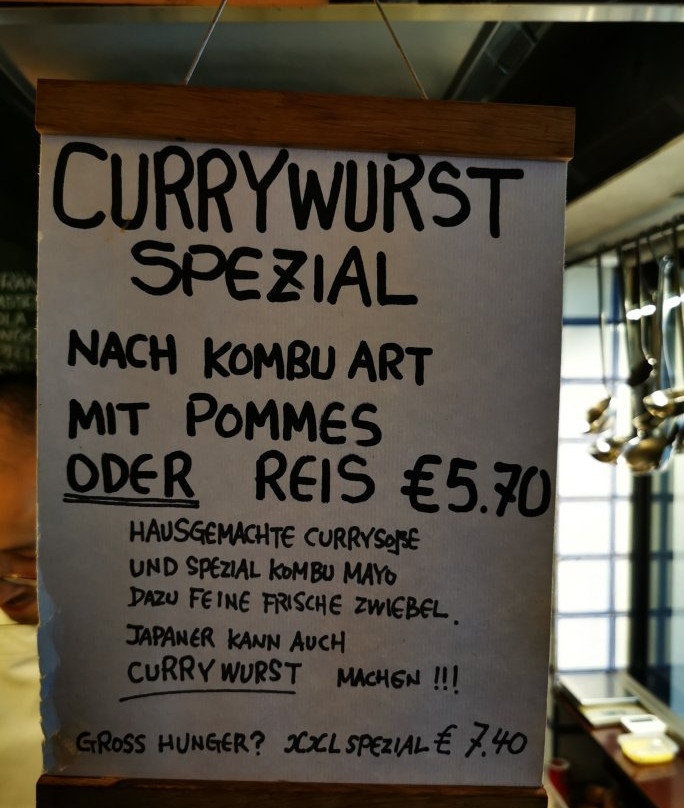 CURRYWURST
SPEZIAL
NACH KOMBU ART
MIT POMMES
ODER REIS €5.70
HAUSGEMACHTE CURRYSOßE
UND SPEZIAL KOMBU MAYO
DAZU FEINE FRISCHE ZWIEBEL.
JAPANER KANN AUCH
CURRY WURST MACHEN !!!
GROSS HUNGER? XXL SPEZIAL € 7.40